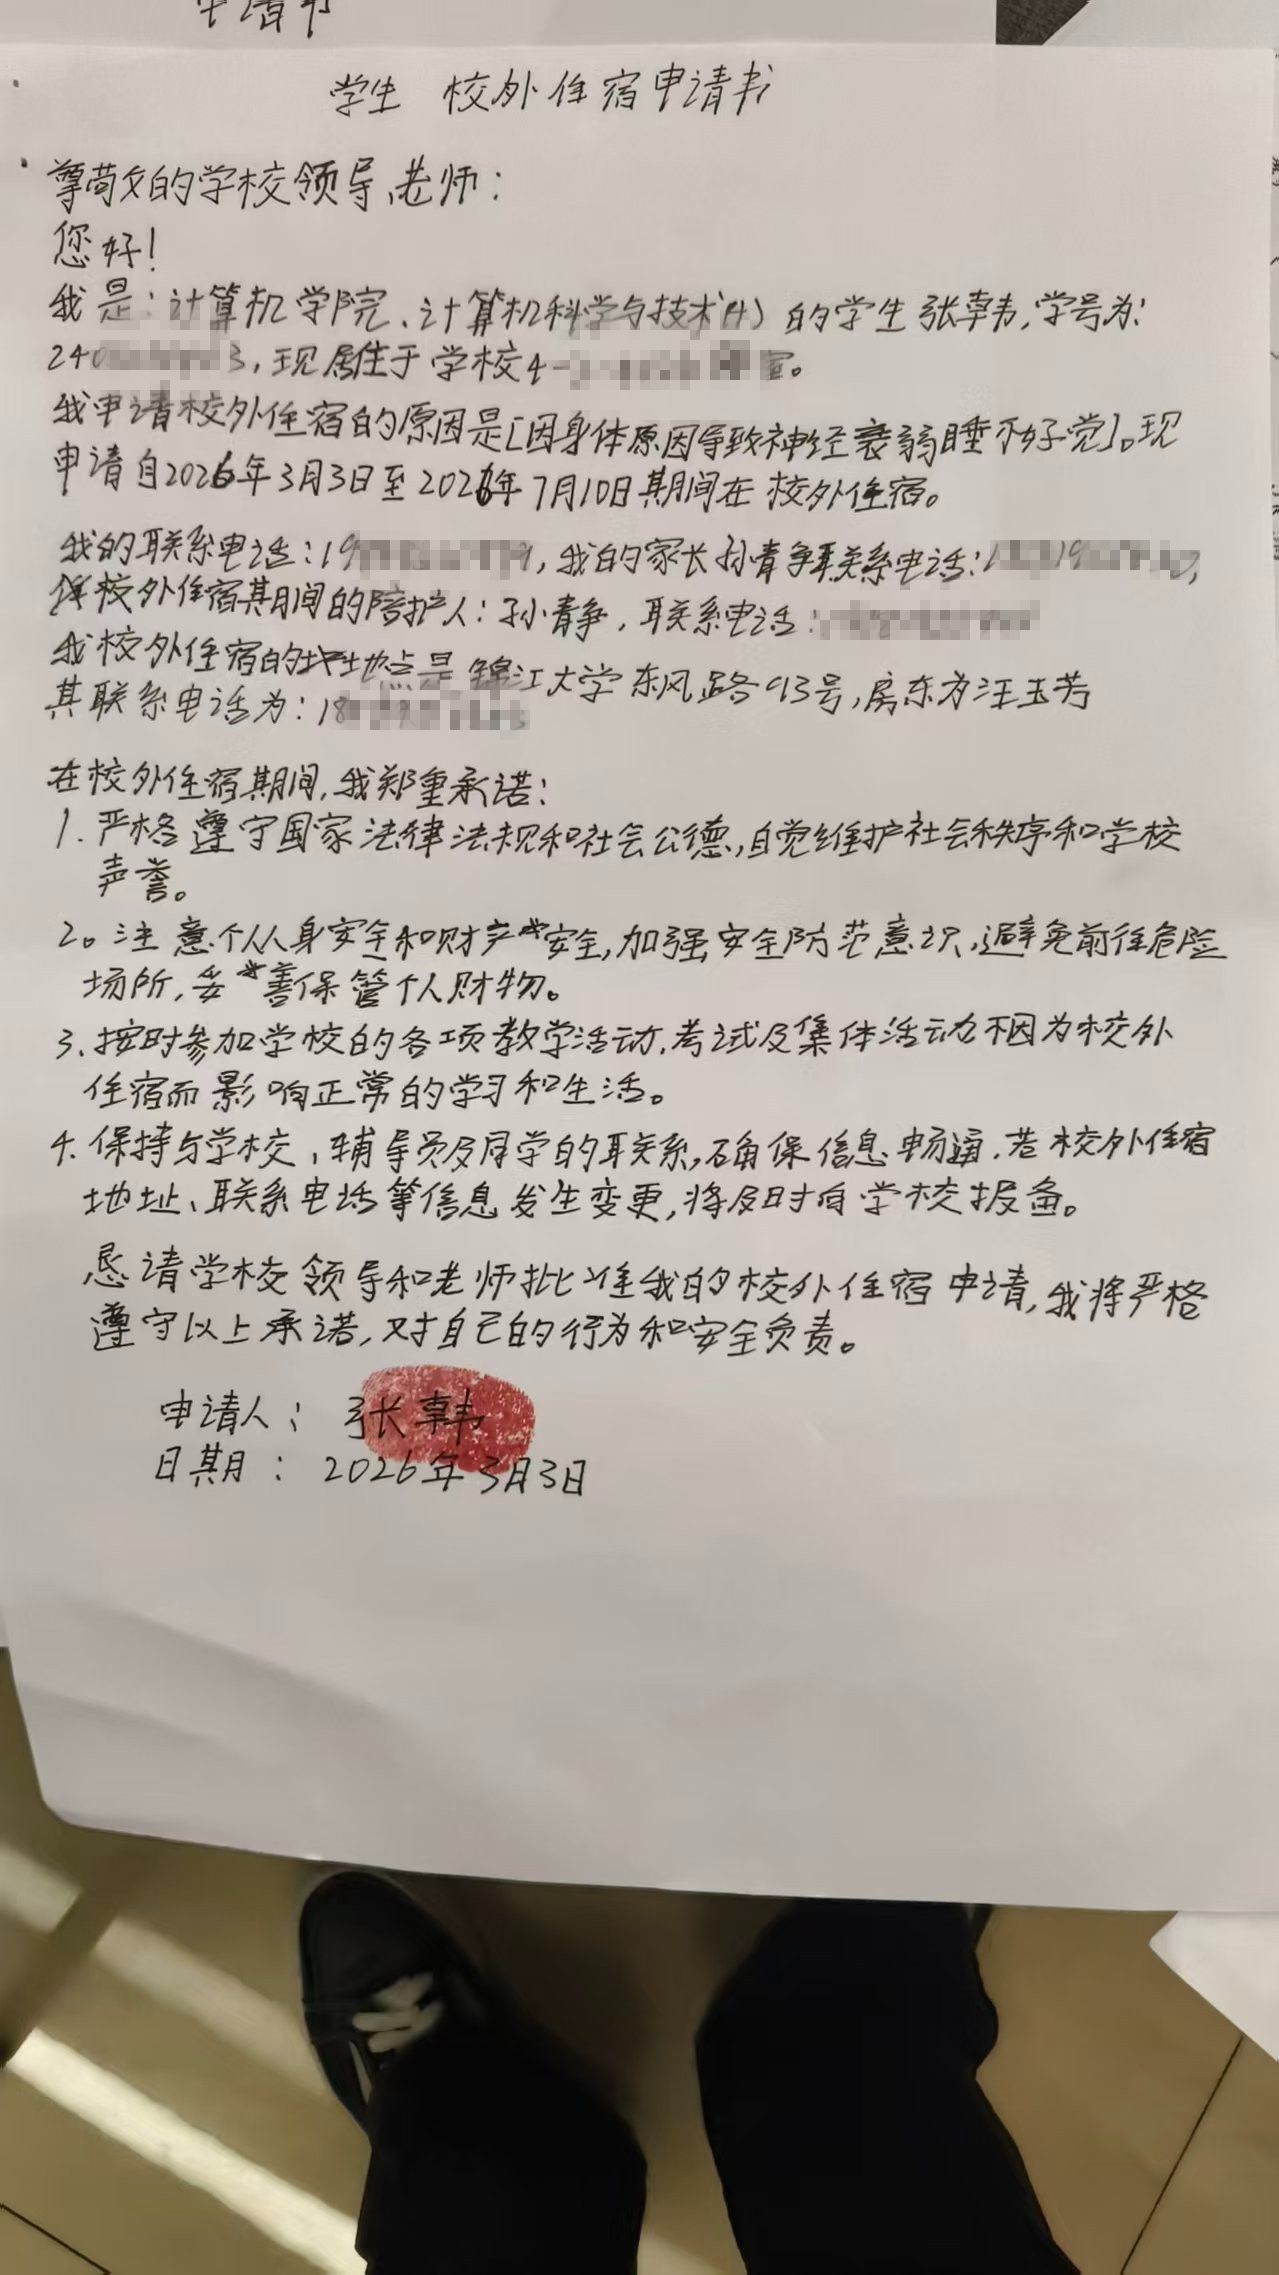 申请书
学生 校外住宿申请书
尊敬的学校领导、老师：
您好！
我是：计算机学院、计算机科学与技术(4) 的学生张韩，学号为：
240 3，现居住于学校4- 室。
我申请校外住宿的原因是[因身体原因导致神经衰弱睡不好觉]。现
申请自2026年3月3日至2026年7月10日期间在校外住宿。
我的联系电话：19 ，我的家长孙青争联系电话：1
校外住宿期间的陪护人：孙静，联系电话：
我校外住宿的地点是锦江大学东风路93号，房东为汪玉芳
其联系电话为：18
在校外住宿期间，我郑重承诺：
1. 严格遵守国家法律法规和社会公德，自觉维护社会秩序和学校
声誉。
2。注意个人人身安全和财产安全，加强安全防范意识，避免前往危险
场所，妥善保管个人财物。
3、按时参加学校的各项教学活动、考试及集体活动不因为校外
住宿而影响正常的学习和生活。
4. 保持与学校、辅导员及同学的联系，确保信息畅通，若校外住宿
地址、联系电话等信息发生变更，将及时向学校报备。
恳请学校领导和老师批准我的校外住宿申请，我将严格
遵守以上承诺，对自己的行为和安全负责。
申请人：张韩
日期：2026年3月3日